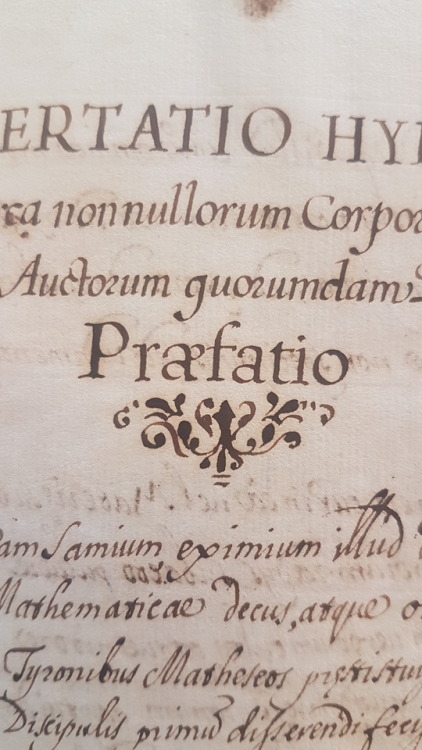 ERTATIO HY
ca nonnullorum Corpor
Auctorum quorumdam
Præfatio
am Samium eximium illud
Mathematicae decus, atque
Tyronibus Matheseos
Discipulis primū disserendi feci